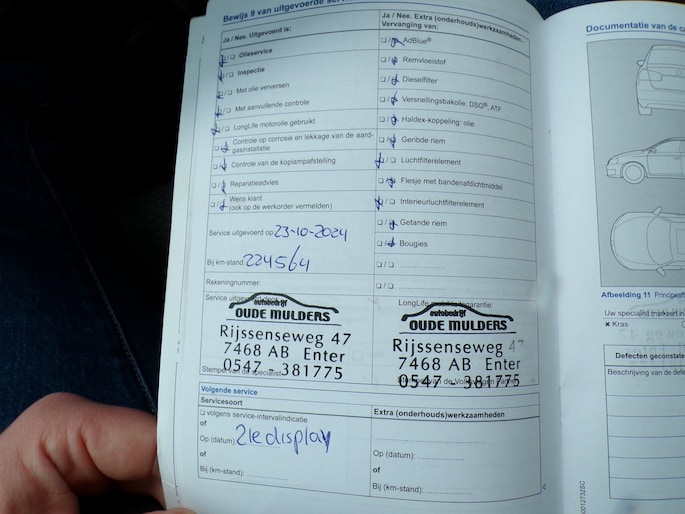 Bewijs 9 van uitgevoerde
Ja / Nee. Uitgevoerd is:
Olieservice
Inspectie
Met olie verversen
Met aanvullende controle
LongLife motorolie gebruikt
Controle op corrosie en lekkage van de aard-
gasinstallatie
Controle van de koplampafstelling
Reparatieadvies
Wens klant
(ook op de werkorder vermelden)
Service uitgevoerd op 23-10-2024
Bij km-stand: 224564
Rekeningnummer:
Service uitgevoerd door
autobedrijf
OUDE MULDERS
Rijssenseweg 47
7468 AB Enter
0547 - 381775
Stempel van de specialist
Ja / Nee. Extra (onderhouds)werkzaamheden -
Vervanging van:
AdBlue®
Remvloeistof
Dieselfilter
Versnellingsbakolie: DSG®, ATF
Haldex-koppeling: olie
Geribde riem
Luchtfilterelement
Flesje met bandenafdichtmiddel
Interieurluchtfilterelement
Getande riem
Bougies
autobedrijf
OUDE MULDERS
Rijssenseweg 47
7468 AB Enter
0547 - 381775
Volgende service
Servicesoort
volgens service-intervalindicatie
of
Op (datum): zie display
of
Bij (km-stand):
Extra (onderhouds)werkzaamheden
Op (datum):
of
Bij (km-stand):
Documentatie van de
Afbeelding 11
Uw specialist markeert
× Kras
Defecten geconstate
Beschrijving van de